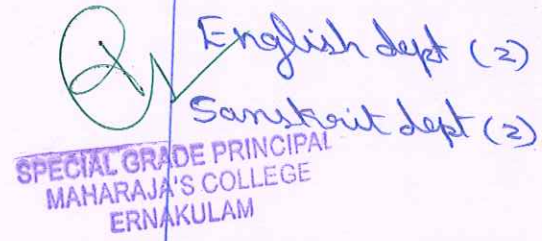 English dept (2)
Sanskrit dept (2)
SPECIAL GRADE PRINCIPAL
MAHARAJA'S COLLEGE
ERNAKULAM